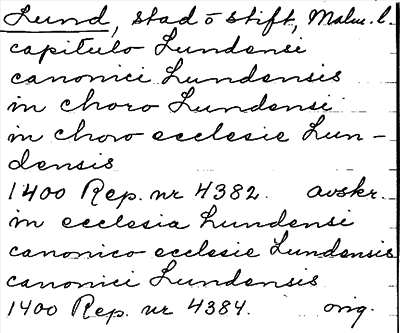 Lund, stad o stift, Malm. l.
capitulo Lundensi
canonici Lundensis
in choro Lundensi
in choro ecclesie Lun-
densis
1400 Rep. nr 4382. avskr.
in ecclesia Lundensi
canonico ecclesie Lundensis
canonici Lundensis
1400 Rep. nr 4384. orig.